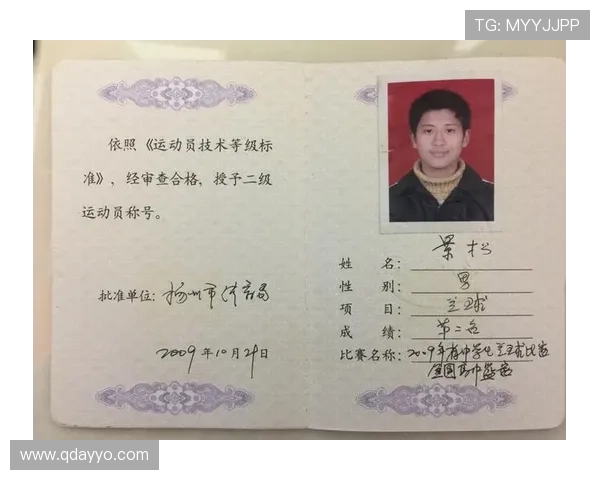 TG: MYYJJPP
依照《运动员技术等级标
准》，经审查合格，授予二级
运动员称号。
批准单位：扬州市体育局
2009年10月29日
姓 名：景松
性 别：男
项 目：篮球
成 绩：第二名
比赛名称：2009年省中学生篮球比赛
www.qdayyo.com